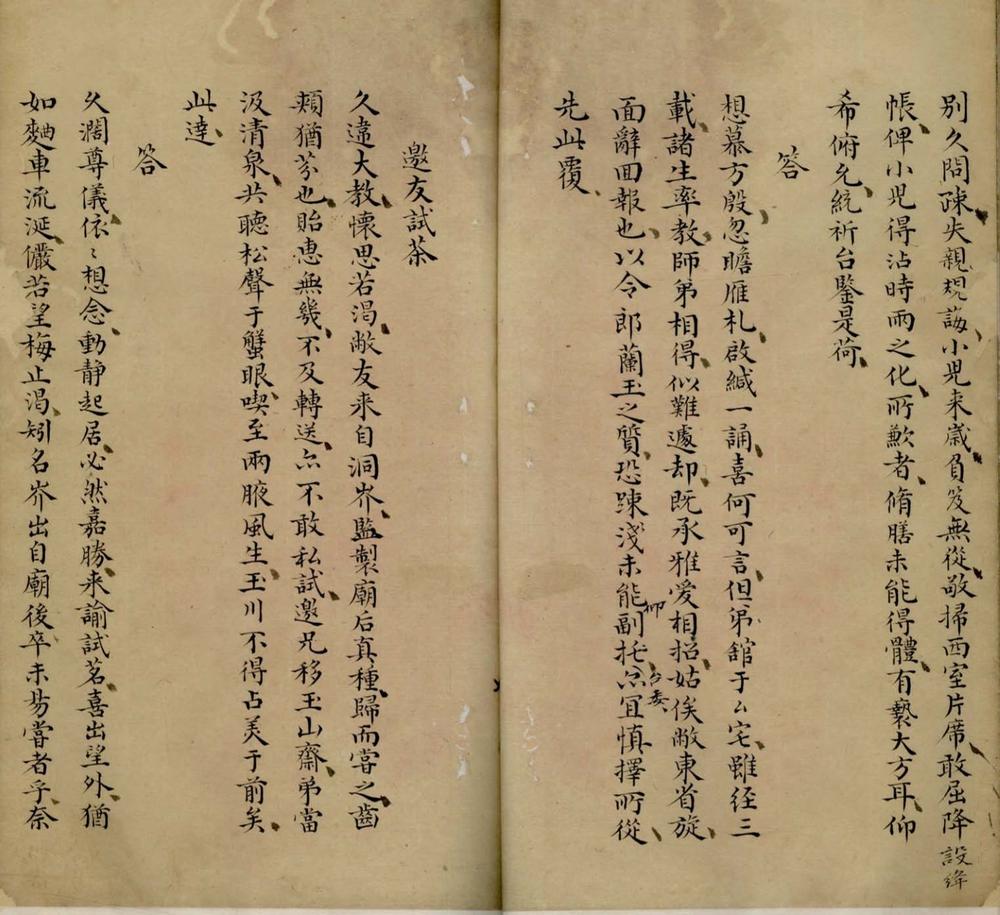 別久問疎失親規誨小児来歳負笈無從敬掃西室片席敢屈降設絳
帳俾小児得沾時雨之化所歉者脩膳未能得體有褻大方耳仰
希俯允統祈台鑒是荷
答
想慕方殷忽瞻雁札啟緘一誦喜何可言但弟舘于厶宅雖経三
載諸生率教師弟相得似難遽却既承雅爱相招姑俟敝東省旋
面辭面報也以令郎蘭玉之質恐踈淺未能仰副托台委亦宜慎擇所從
先此覆
邀友試茶
久違大教懷思若渴敝友来自洞岕監製廟后真種歸而嘗之齒
頰猶芬也貽惠無幾不及轉送亦不敢私試邀兄移玉山齋弟當
汲清泉共聽松聲于蟹眼喫至兩腋風生玉川不得占美于前矣
此達
答
久濶尊儀依〻想念動静起居必然嘉勝来諭試茗喜出望外猶
如麯車流涎儼若望梅止渴矧名岕出自廟後卒未易嘗者乎奈